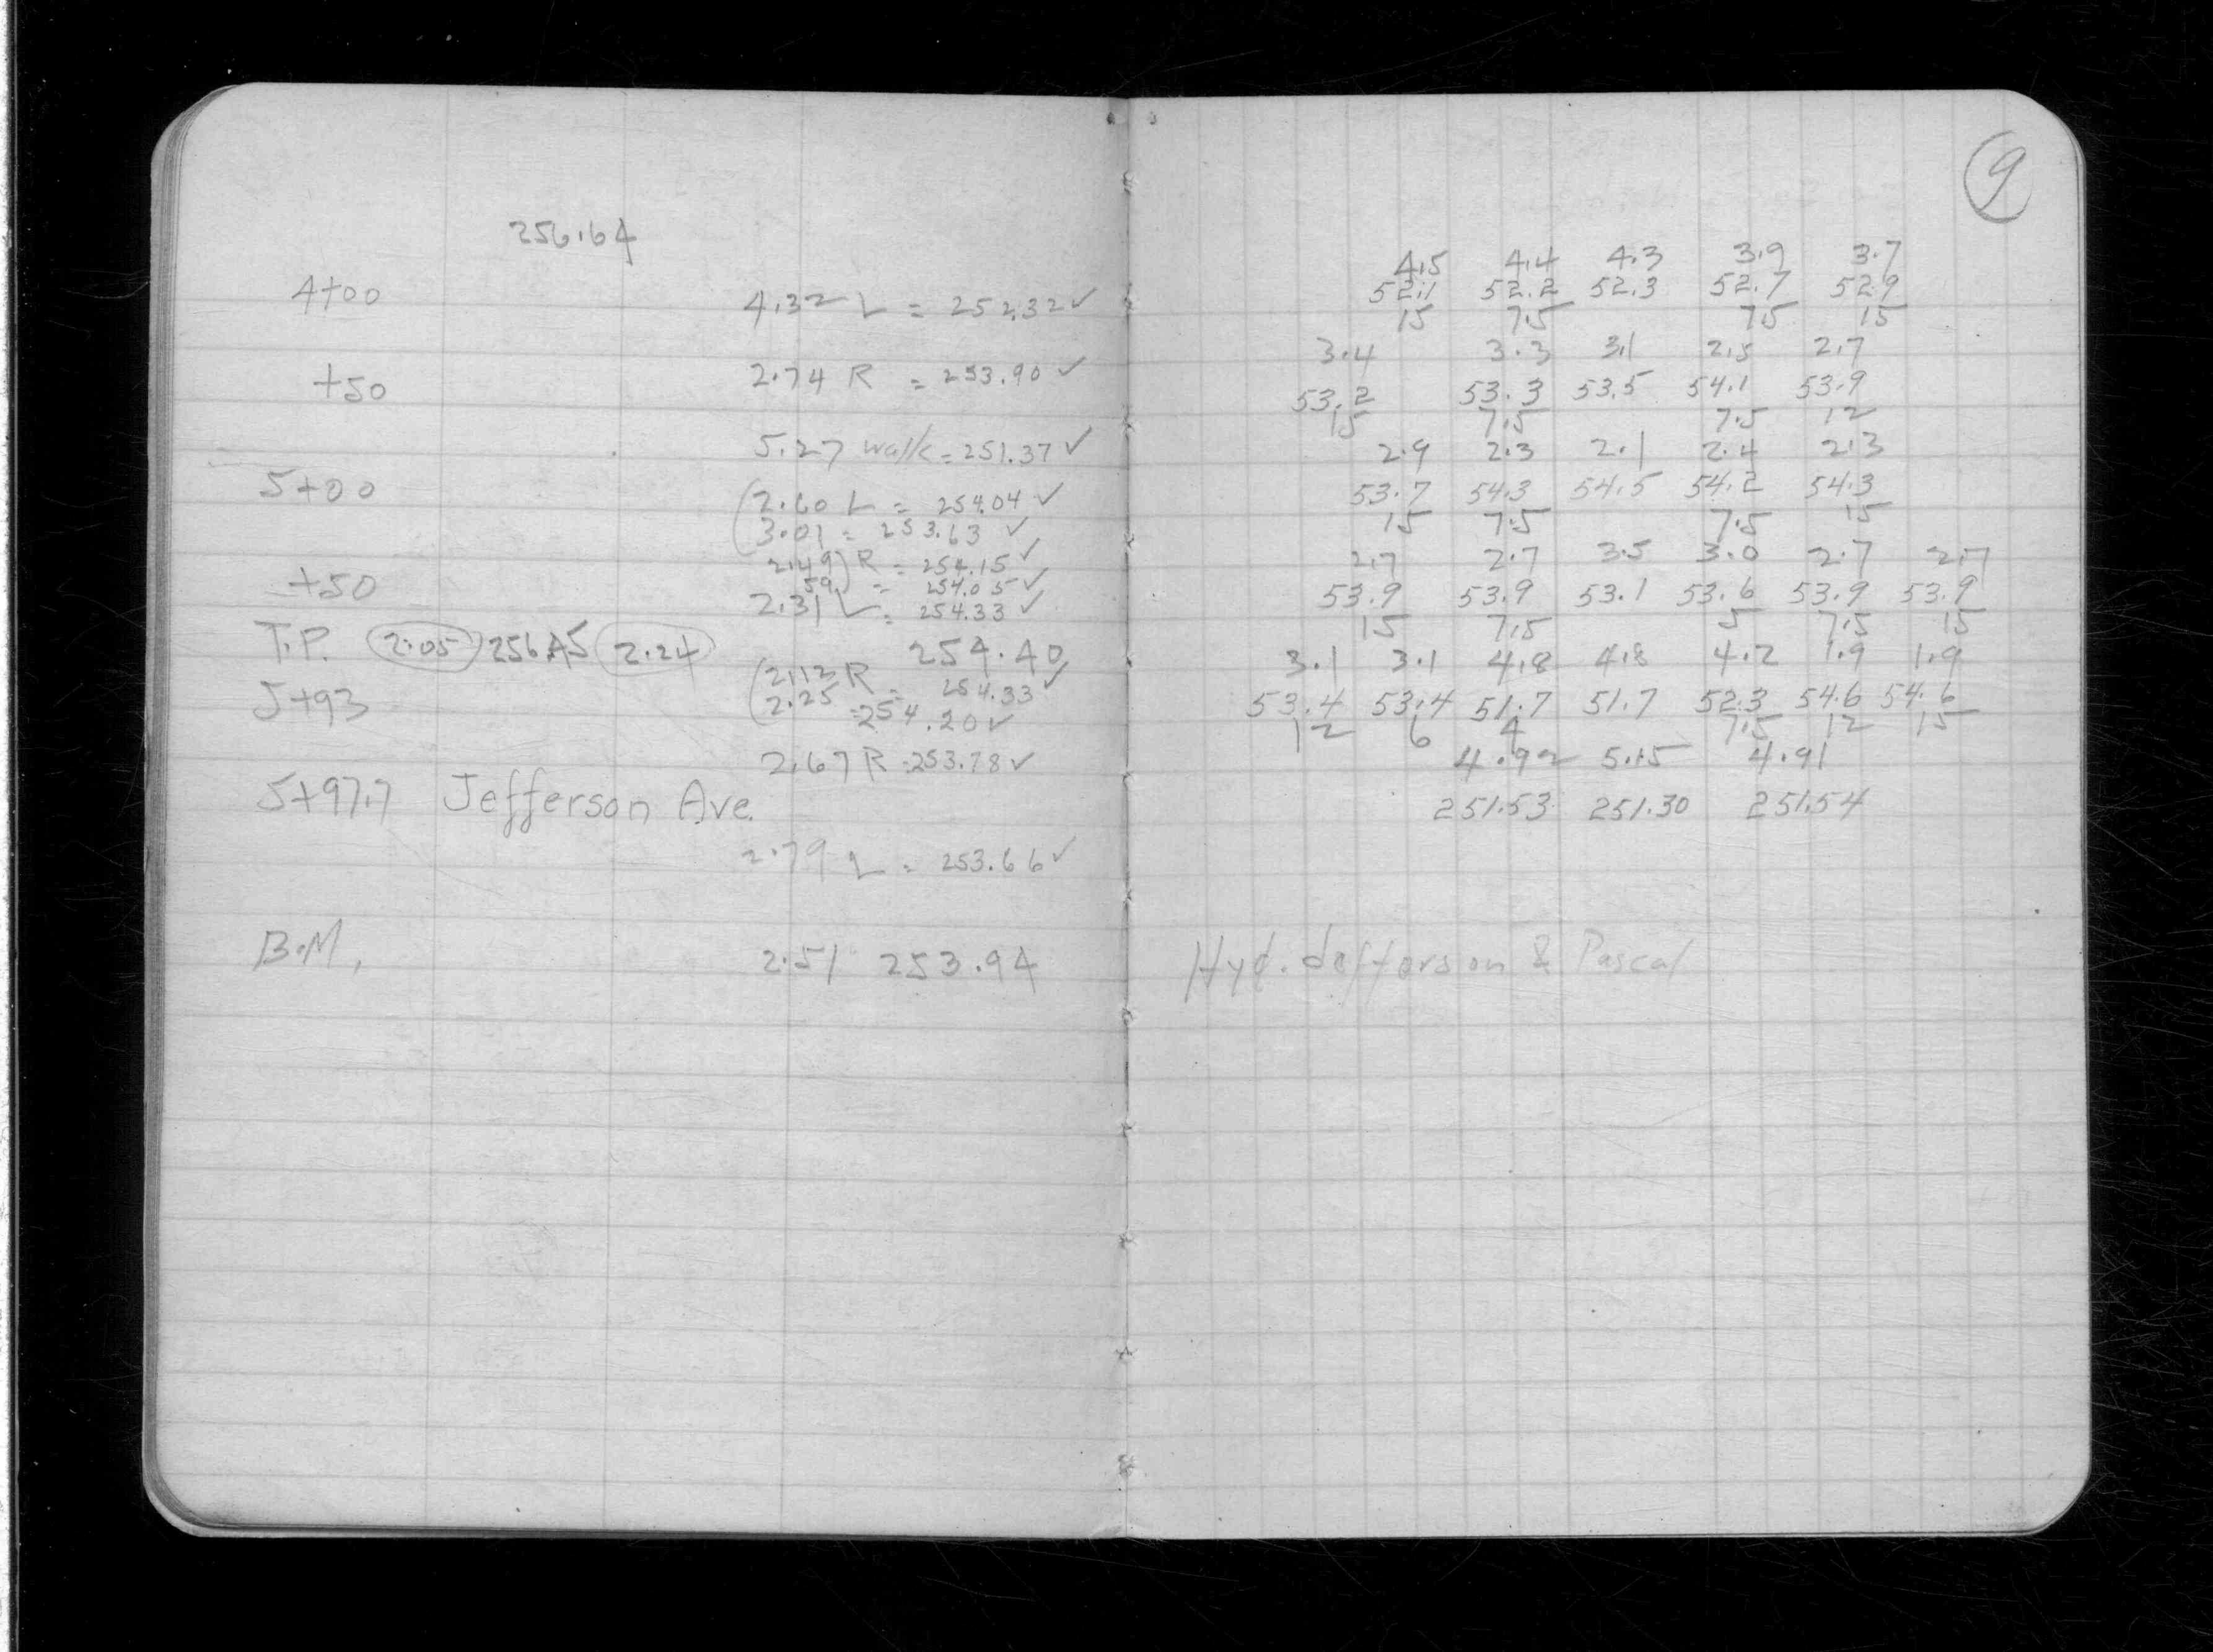 256.64
4+00
4.32 L = 252.32 ✓
+50
2.74 R = 253.90 ✓
5.27 walk = 251.37 ✓
5+00
(2.60 L = 254.04 ✓
3.01 = 253.63 ✓
2.49) R = 254.15 ✓
+50
59) = 254.05 ✓
2.31 L = 254.33 ✓
T.P. 2.05 256.45 2.24 254.40
(2.12 R = 254.33 ✓
5+93
2.25 = 254.20 ✓
2.67 R = 253.78 ✓
5+97.7 Jefferson Ave.
2.79 L = 253.66 ✓
B.M. 2.51 253.94
9
4.5 4.4 4.3 3.9 3.7
52.1 52.2 52.3 52.7 52.9
15 7.5 7.5 15
3.4 3.3 3.1 2.5 2.7
53.2 53.3 53.5 54.1 53.9
15 7.5 7.5 12
2.9 2.3 2.1 2.4 2.3
53.7 54.3 54.5 54.2 54.3
15 7.5 7.5 15
2.7 2.7 3.5 3.0 2.7 2.7
53.9 53.9 53.1 53.6 53.9 53.9
15 7.5 5 7.5 15
3.1 3.1 4.8 4.8 4.2 1.9 1.9
53.4 53.4 51.7 51.7 52.3 54.6 54.6
12 6 4 7.5 12 15
4.92 5.15 4.91
251.53 251.30 251.54
Hyd. Jefferson & Pascal